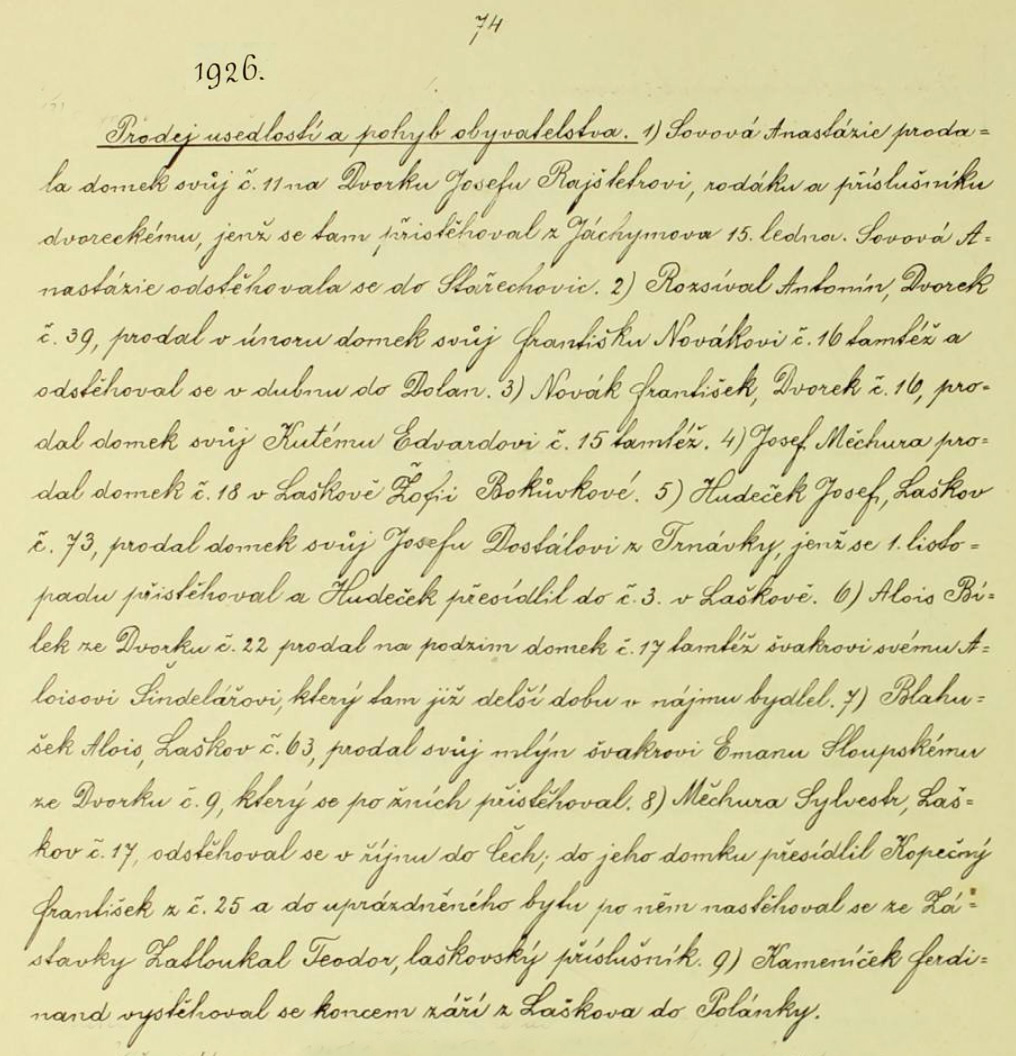 74
1926.
Prodej usedlostí a pohyb obyvatelstva. 1) Sovová Anastázie proda=
la domek svůj č. 11 na Dvorku Josefu Rajštetrovi, rodáku a příslušníku
dvoreckému, jenž se tam přistěhoval z Jáchymova 15. ledna. Sovová A=
nastázie odstěhovala se do Stařechovic. 2) Rozsíval Antonín, Dvorek
č. 39, prodal v únoru domek svůj Františku Novákovi č. 16 tamtéž a
odstěhoval se v dubnu do Dolan. 3) Novák František, Dvorek č. 16, pro=
dal domek svůj Kutému Edvardovi č. 15 tamtéž. 4) Josef Měchura pro=
dal domek č. 18 v Laškově Žofii Bokůvkové. 5) Hudeček Josef, Laškov
č. 73, prodal domek svůj Josefu Dostálovi z Trnávky, jenž se 1. listo=
padu přistěhoval a Hudeček přesídlil do č. 3. v Laškově. 6) Alois Bí=
lek ze Dvorku č. 22 prodal na podzim domek č. 17 tamtéž švakrovi svému A=
loisovi Šindelářovi, který tam již delší dobu v nájmu bydlel. 7) Blahu=
šek Alois, Laškov č. 63, prodal svůj mlýn švakrovi Emanu Sloupskému
ze Dvorku č. 9, který se po žních přistěhoval. 8) Měchura Sylvestr, Laš=
kov č. 17, odstěhoval se v říjnu do Čech; do jeho domku přesídlil Kopečný
František z č. 25 a do uprázdněného bytu po něm nastěhoval se ze Zá=
stavky Zatloukal Teodor, laškovský příslušník. 9) Kameníček Ferdi=
nand vystěhoval se koncem září z Laškova do Polánky.